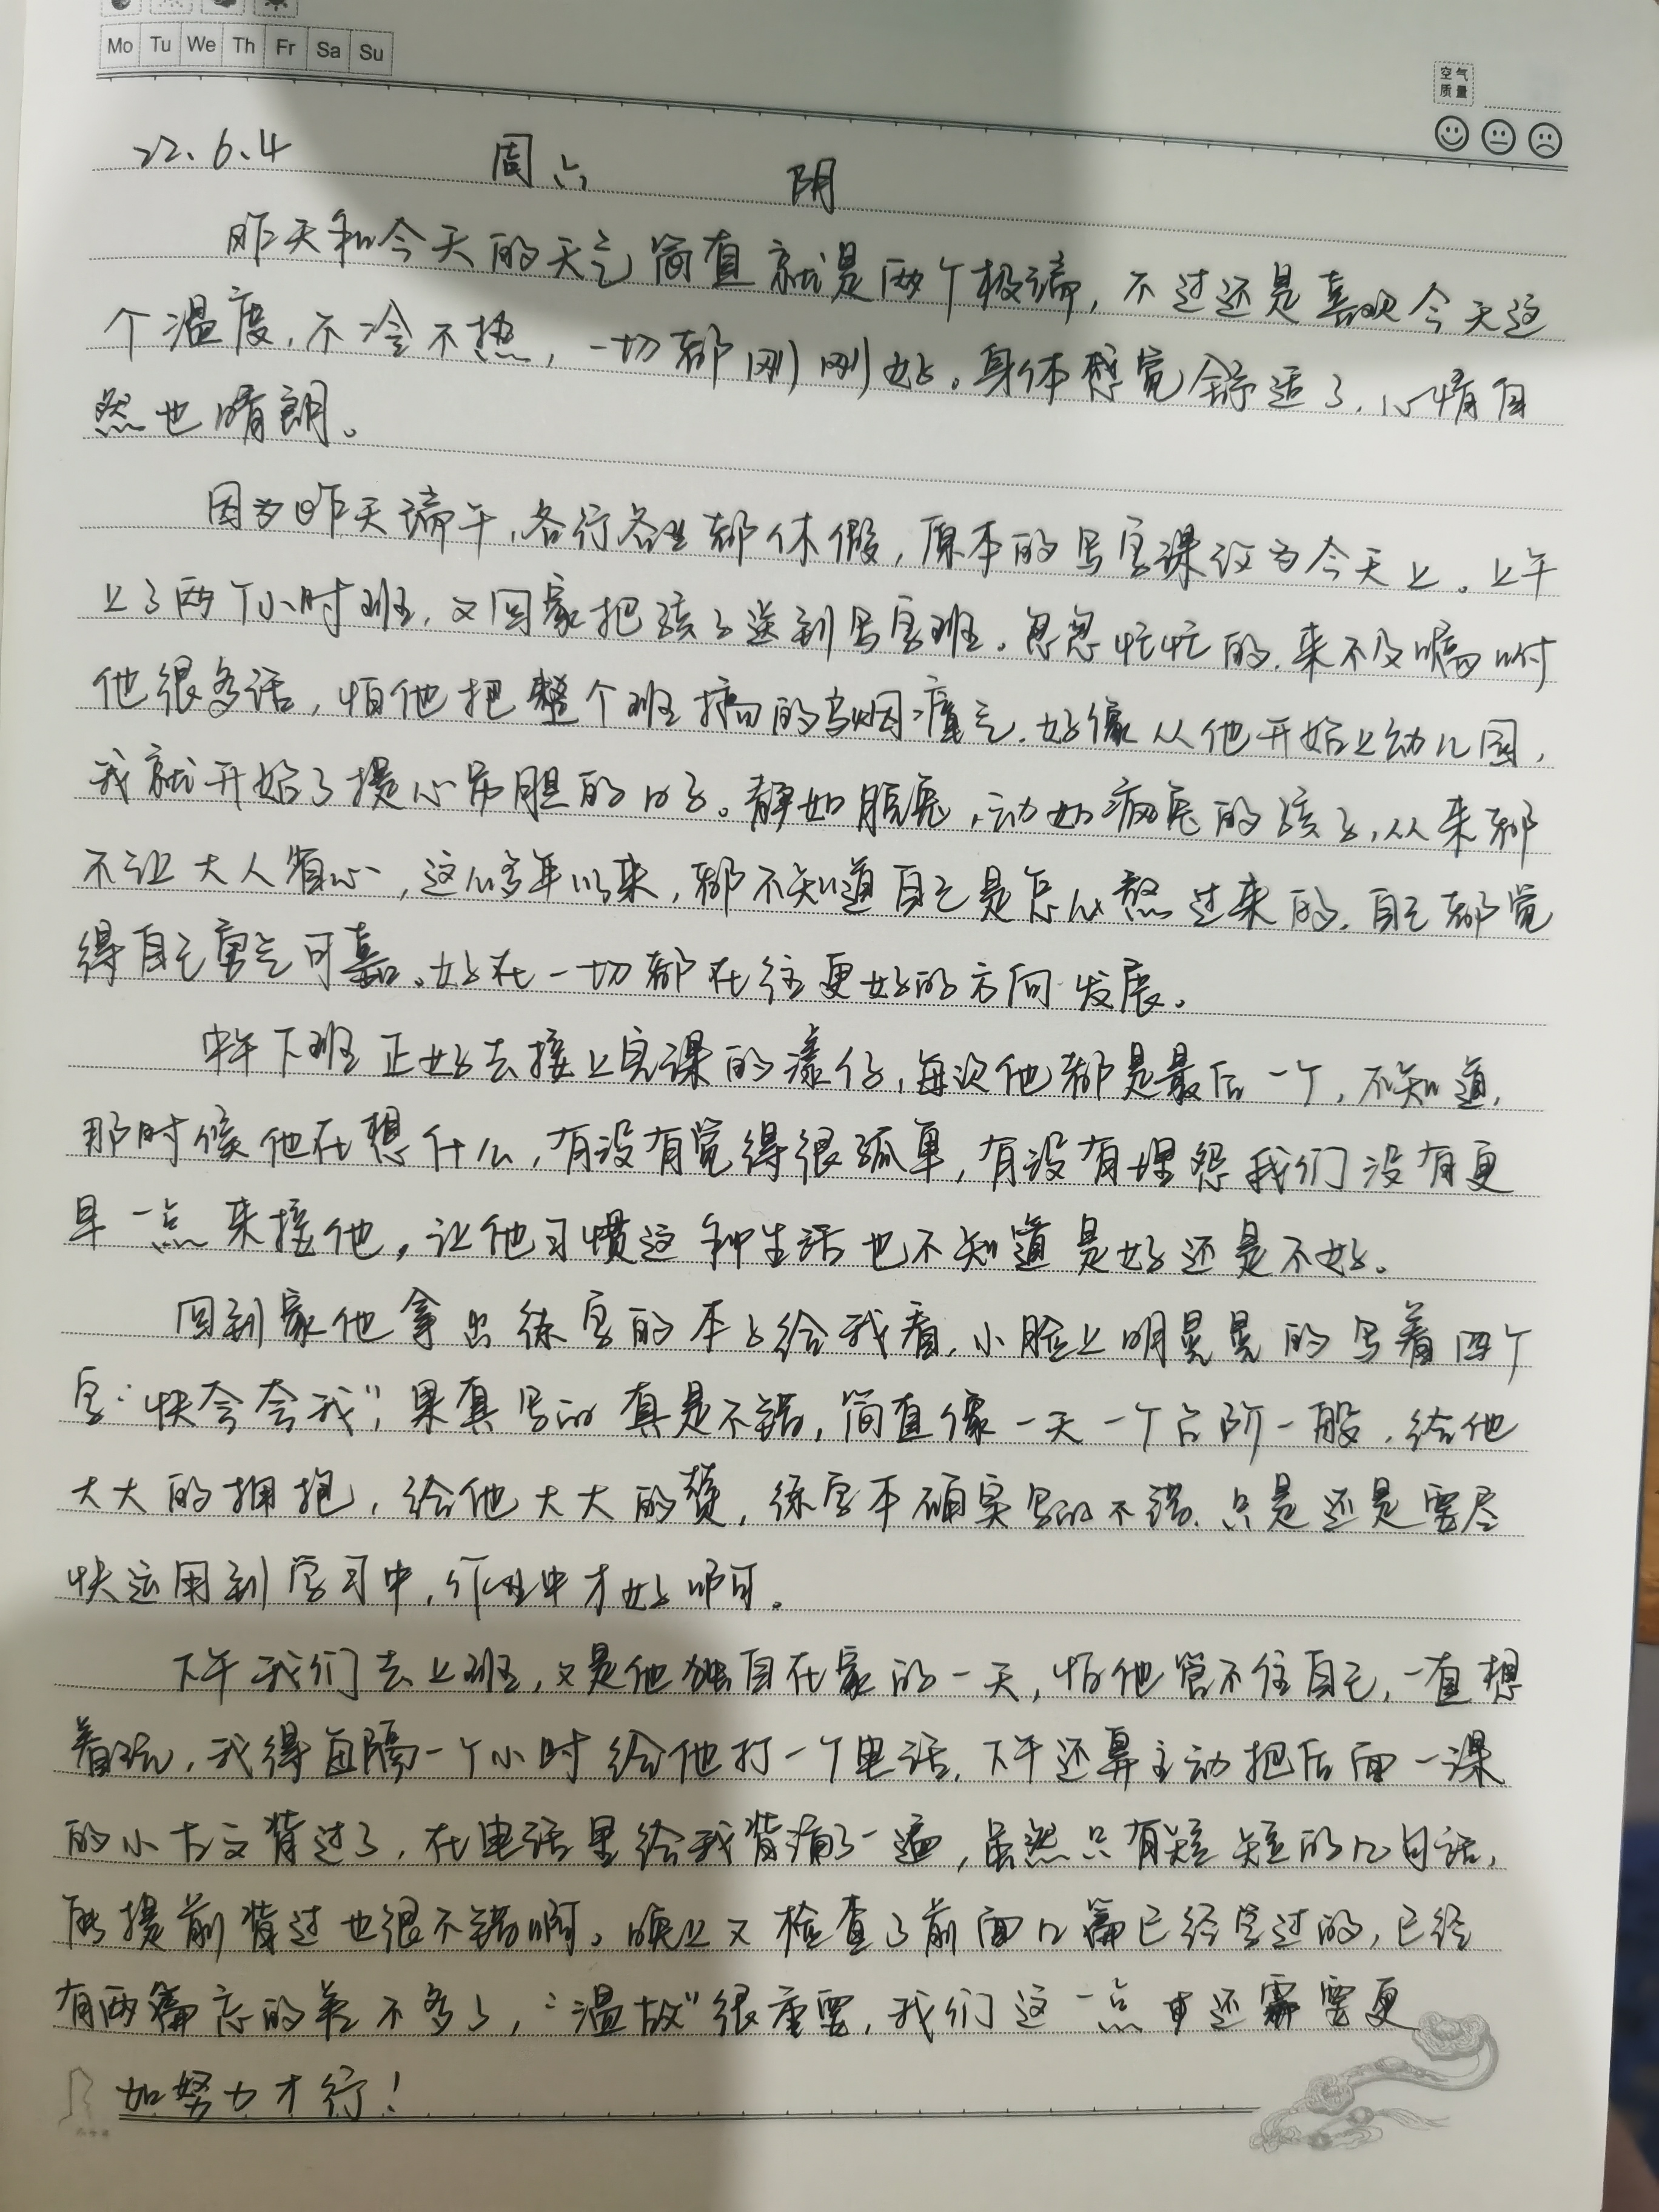 Mo Tu We Th Fr Sa Su
空气
质量
22.6.4 周六 阴
昨天和今天的天气简直就是两个极端，不过还是喜欢今天这
个温度，不冷不热，一切都刚刚好。身体感觉舒适了，心情自
然也晴朗。
因为昨天端午，各行各业都休假，原本的写字课改为今天上。上午
上了两个小时班，又回家把孩子送到写字班。忽忽忙忙的，来不及嘱咐
他很多话，怕他把整个班搞的乌烟瘴气，好像从他开始上幼儿园，
我就开始了提心吊胆的日子。静如脱兔，动如疯兔的孩子，从来都
不让大人省心，这么多年以来，都不知道自己是怎么熬过来的，自己都觉
得自己勇气可嘉。好在一切都在往更好的方向发展。
中午下班正好去接上完课的漾仔，每次他都是最后一个，不知道，
那时候他在想什么，有没有觉得很孤单，有没有埋怨我们没有更
早一点来接他，让他习惯这种生活也不知道是好还是不好。
回到家他拿出练字的本子给我看，小脸上明晃晃的写着四个
字“快夸夸我”，果真写的真是不错，简直像一天一个台阶一般，给他
大大的拥抱，给他大大的赞，练字本确实写的不错，只是还是要尽
快运用到学习中，作业中才好啊。
下午我们去上班，又是他独自在家的一天，怕他管不住自己，一直想
着玩，我得每隔一个小时给他打一个电话，下午还算主动把后面一课
的小古文背过了，在电话里给我背诵了一遍，虽然只有短短的几句话，
能提前背过也很不错啊。晚上又检查了前面几篇已经学过的，已经
有两篇忘的差不多了，“温故”很重要，我们这一点还需要更
加努力才行！